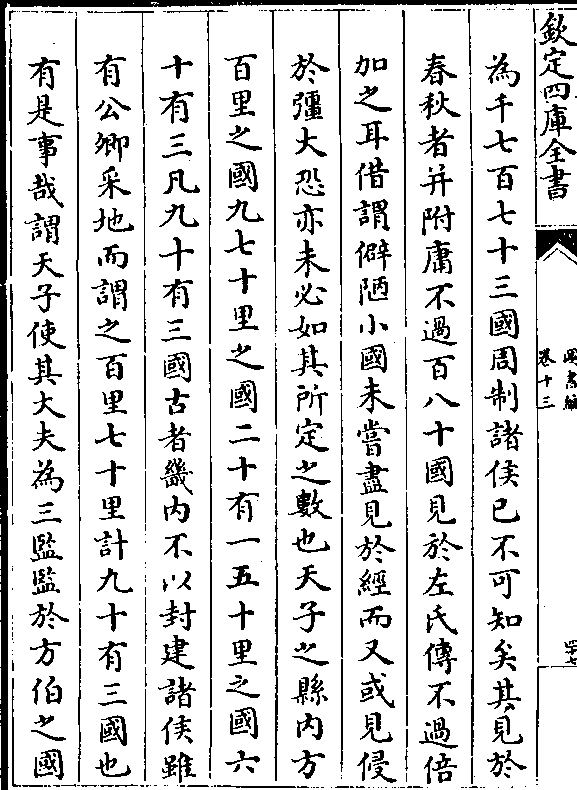 欽定四庫全書
圖書編
卷十三
四十七
為千七百七十三國周制諸侯已不可知矣其見於
春秋者并附庸不過百八十國見於左氏傳不過倍
加之耳借謂僻陋小國未嘗盡見於經而又或見侵
於彊大恐亦未必如其所定之數也天子之縣內方
百里之國九七十里之國二十有一五十里之國六
十有三凡九十有三國古者畿內不以封建諸侯雖
有公卿采地而謂之百里七十里計九十有三國也
有是事哉謂天子使其大夫為三監監於方伯之國